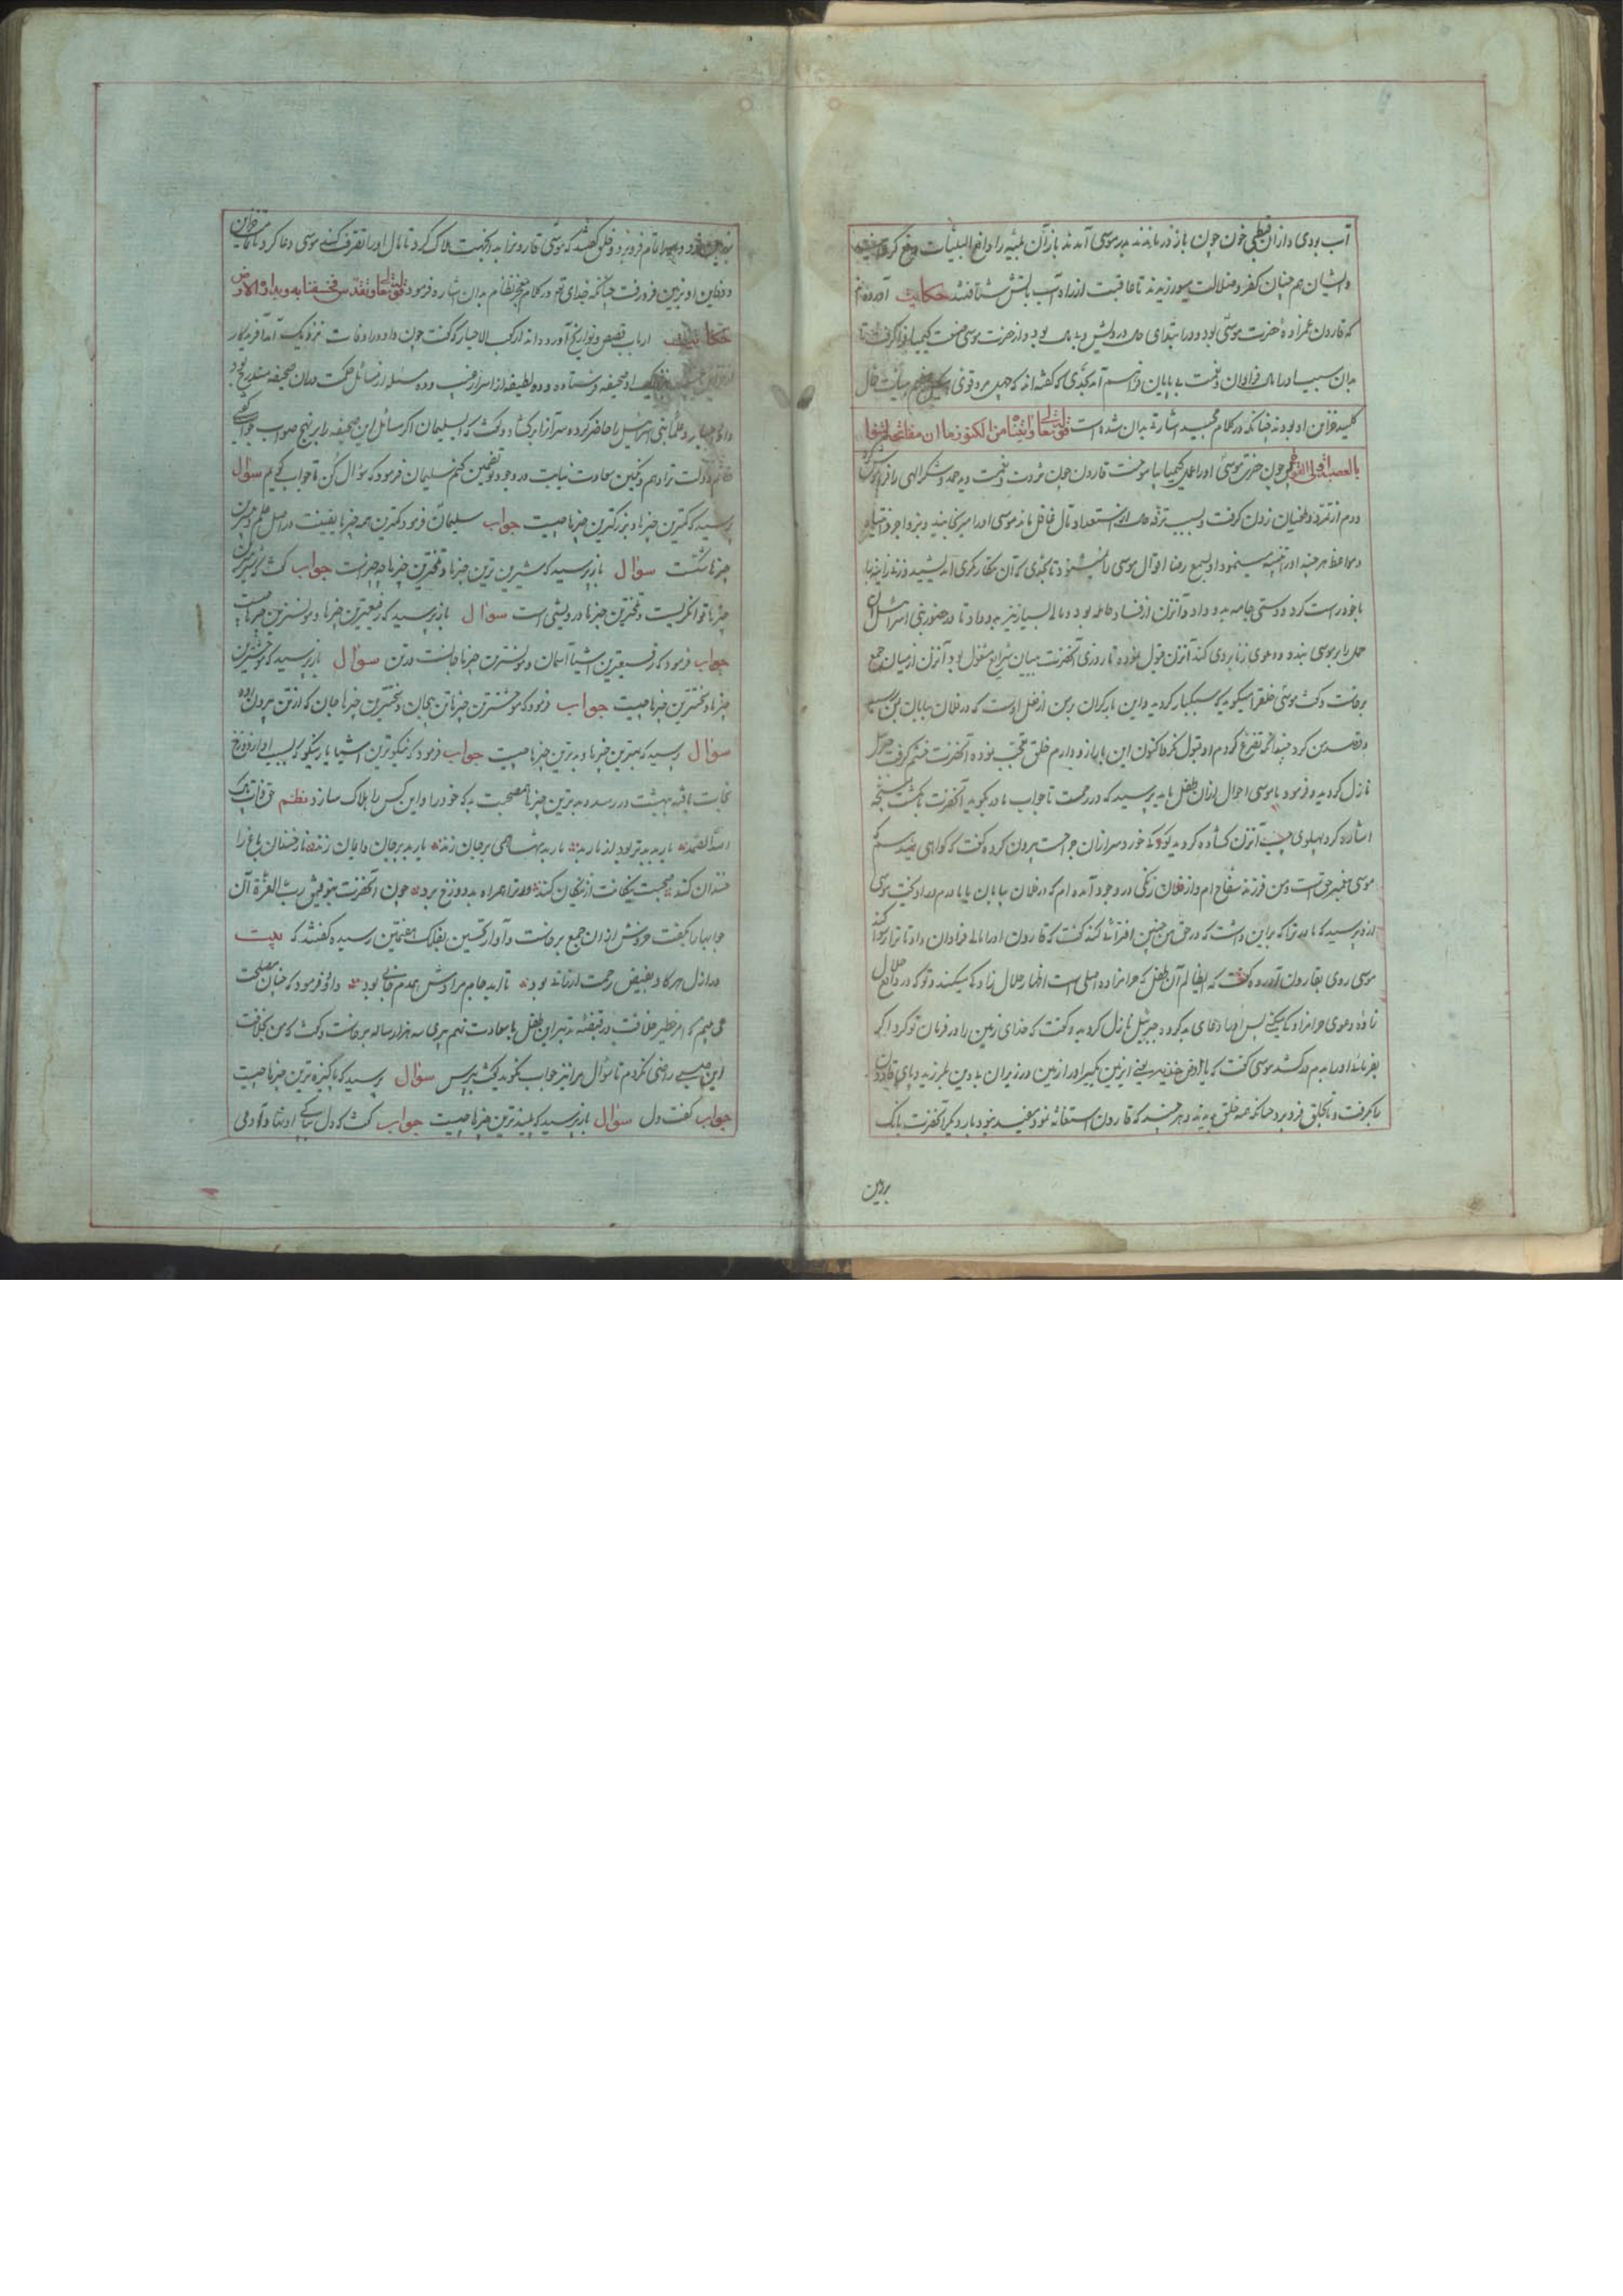 آب بودی و از آن قبطی خون چون باز در ماندند بدر موسی آمدند باز آن بلیه را دافع البلیات رفع کرد
و ایشان هم چنان کفر و ضلالت میورزیدند تا عاقبت از راه آب بآتش شتافتند حکایت آورده اند
که قارون عمزادهٔ حضرت موسی بود و در ابتدای حال درویش و بد حال بود و از حضرت موسی صنعت کیمیا فرا گرفت تا
بدان سبب او را مال فراوان و نعمت بی پایان فراهم آمد بحدی که گفته اند که چهل مرد قوی
کلید خزاین او بودند چنانکه در کلام مجید اشارت بدان شده است قوله تعالی و آتیناه من الکنوز ما ان مفاتحه لتنوأ
بالعصبة اولی القوة چون حضرت موسی او را عمل کیمیا بیاموخت قارون چون ثروت و نعمت دید حمد و شکر الهی را فراموش کرد
و دم از تمرد و طغیان زدن گرفت و بسبب ترفه حال و استعداد مال غافل ماند موسی او را میرنجانید و بزواجر
و مواعظ هر چند او را تنبیه مینمود او بسمع رضا اقوال موسی را نمیشنود تا بحدی که آن مکار مکری اندیشید و زنی زانیه را
با خود راست کرد و دستی جامه بدو داد و آنزن از فساد حامله بود و مالی بسیار نیز بدو داد تا در حضور بنی اسرائیل آن
حمل را بر موسی بندد و دعوی زنا بر وی کند آنزن قبول نموده تا روزی آنحضرت ببیان شرایع مشغول بود آنزن از میان جمع
برخاست و گفت موسی خلق را میگوید که سبکبار گردید و این بار گران بر من از فعل اوست که در فلان بیابان بمن رسید
و قصد من کرد چندانکه تضرع کردم او قبول نکرد اکنون این بار ازو دارم خلق متعجب بودند آنحضرت خشم گرفت جبرئیل
نازل گردید و فرمود یا موسی احوال ازان طفل باید پرسید که در رحمست تا جواب مادر بگوید آنحضرت بانگشت مسبحه
اشاره کرد پهلوی چپ آنزن گشاده گردید کودک خورد سر ازان جراحت بیرون کرده گفت که گواهی میدهم که
موسی پیغمبر حق است و من فرزند سفاح ام و از فلان زنگی در وجود آمده ام که در فلان بیابان با مادرم در آمیخت موسی
ازو پرسید که مادر ترا که بر این داشت که در حق من چنین افترائی کند گفت که قارون او را مالی فراوان داد تا ترا رسوا کند
موسی روی بقارون آورده گفت که ای ظالم آن طفل که حرامزاده اصلی است اظهار حلال زادگی میکند و تو که در واقع حلال
زاده دعوی حرامزادگی میکنی پس او را دعای بد کرد و جبرئیل نازل گردید و گفت که خدای زمین را در فرمان تو کرد اگر
بفرمائی او را بدم در کشد موسی گفت که یا ارض خذیه یعنی ای زمین بگیر او را زمین در زیر آن بی دین بلرزید و پای قارون
را بگرفت و تا بحلق فرو برد چنانکه همه خلق بدیدند و هر چند که قارون استغاثه نمود مفید نبود بار دیگر آنحضرت بانگ
بر زمین
فرو برد خلق گفتند که موسی قارون را بدانجهت هلاک کرد تا مال او را تصرف کند موسی دعا کرد تا خزاین
و دفاین او بزمین فرو رفت چنانکه خدای تعالی در کلام معجز نظام بدان اشاره فرمود قوله تعالی و تقدس فخسفنا به و بداره الارض
حکایت ارباب قصص و تواریخ آورده اند از کعب الاحبار که گفت چون داود را وفات نزدیک آمد آفریدگار
صحیفه فرستاده و ده لطیفه از اسرار غیب و ده مسئله از مسائل حکمت در آن صحیفه مندرج بود
داود احبار و علمأ بنی اسرائیل را حاضر کرده سر آنرا بر گشاد و گفت که ای سلیمان اگر مسائل این صحیفه را بر نهج صواب جواب گویی
خاتم دولت ترا دهم و نگین سعادت نیابت در وجود تو تضمین کنم سلیمان فرمود که سؤال کن تا جواب گویم سؤال
پرسید که کمترین چیزها و بزرگترین چیزها چیست جواب سلیمان فرمود کمترین همه چیزها یقینست در اصل علم و بیشترین
چیزها شکست سؤال باز پرسید که شیرین ترین چیزها و تلخترین چیزها چه چیزست جواب گفت که شیرین ترین
چیزها توانگریست و تلخترین چیزها درویشی است سؤال باز پرسید که رفیعترین چیزها و مونسترین چیزها چیست
جواب فرمود که رفیعترین اشیا آسمان و مونسترین چیزها جانست در تن سؤال باز پرسید که خوشترین
چیزها و سختترین چیزها چیست جواب فرمود که خوشترین چیزها تن بجان و سختترین چیزها جان که از تن بیرون رود
سؤال پرسید که بهترین چیزها و بدترین چیزها چیست جواب فرمود که نیکوترین اشیا یار نیکو که بسبب او از دوزخ
نجات یافته ببهشت در رسد و بدترین چیزها مصاحبت بد که خود را و این کس را هلاک سازد نظم حق ذات پاک
الله الصمد یار بد بدتر بود از مار بد مار بد تنها همی بر جان زند یار بد بر جان و ایمان زند نار خندان باغ را
خندان کند صحبت نیکانت از نیکان کند و ترا همراه بد دوزخ برد چون آنحضرت بتوفیق رب العزة آن
جوابها را بگفت خروش ازان جمع برخاست و آواز تحسین بفلک هفتمین رسیده گفتند که بیت
در ازل هر کاو بفیض رحمت ارزانی بود تا ابد جام مرادش همدم جانی بود داود فرمود که چنان مصلحت
می بینم که امر خطیر خلافت در قبضه تدبیر این طفل با سعادت نهم پیری سه هزار ساله برخاست و گفت که من بخلافت
این صبی راضی نگردم تا سؤال مرا نیز جواب نگوید گفت بپرس سؤال پرسید که پاکیزه ترین چیزها چیست
جواب گفت دل سؤال باز پرسید که پلیدترین چیزها چیست جواب گفت که دل